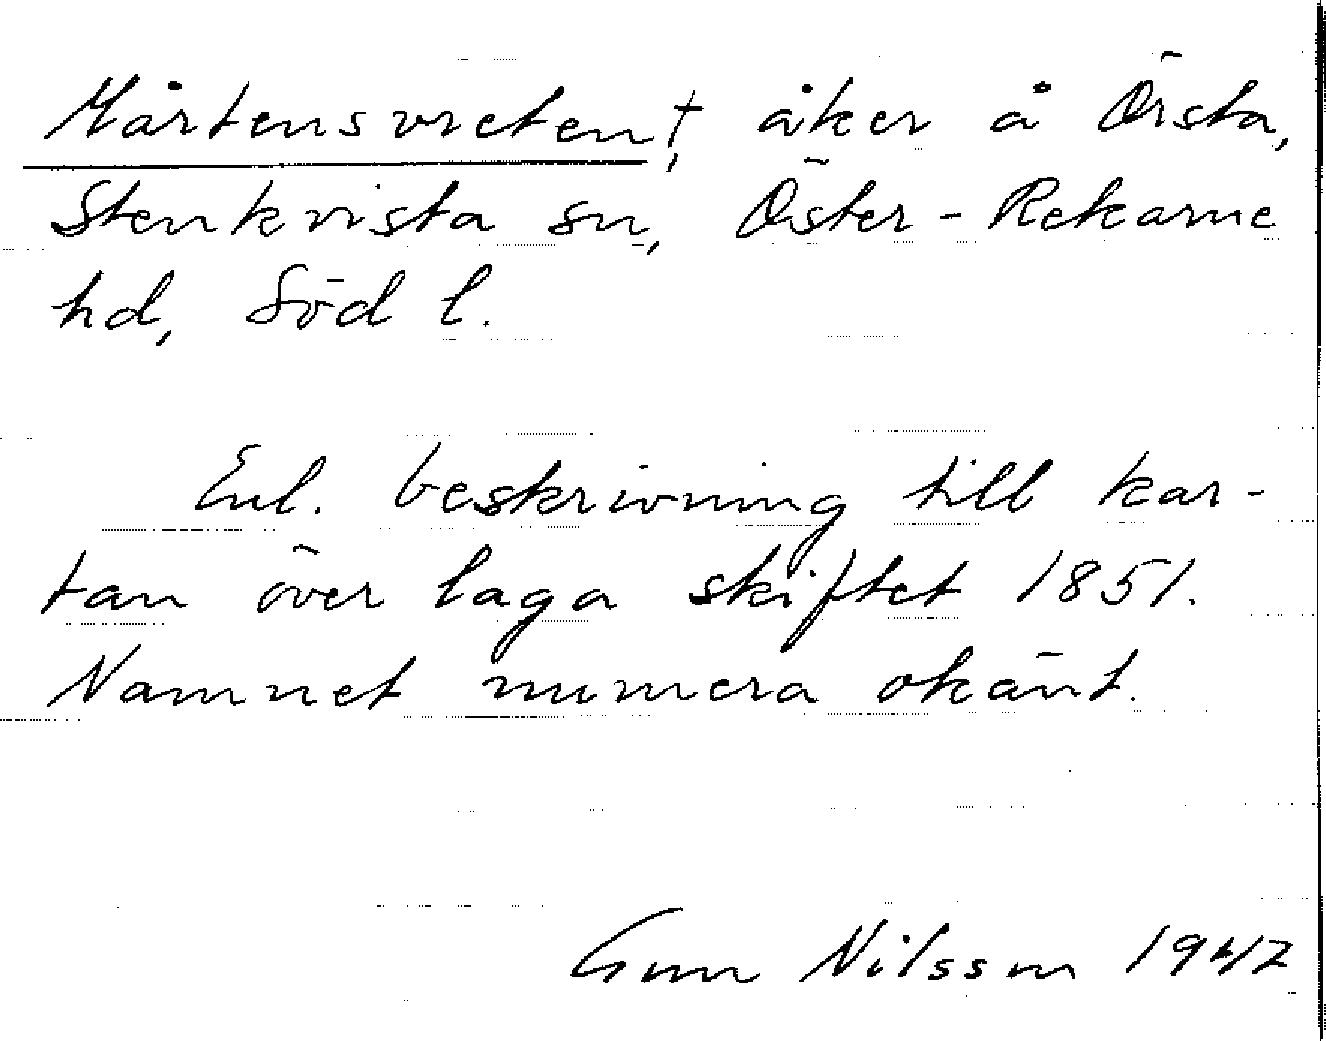 Mårtensvreten†, åker å Örsta,
Stenkvista sn, Öster-Rekarne
hd, Söd l.
Enl. beskrivning till kar-
tan över laga skiftet 1851.
Namnet numera okänt.
Gun Nilsson 1942